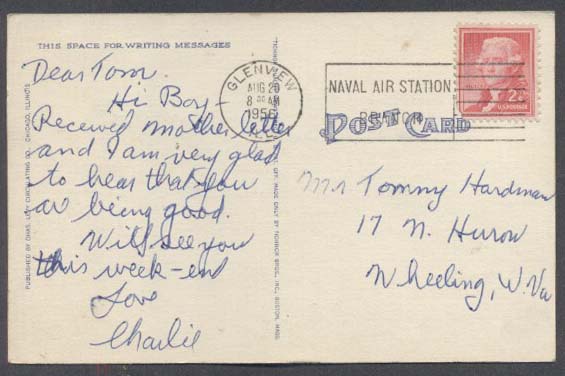 THIS SPACE FOR WRITING MESSAGES
Dear Tom.
Hi Boy –
Received mother letter
and I am very glad
to hear that you
ar being good.
Will see you
this week-end
Love
Charlie
PUBLISHED BY CHAS. LEVY CIRCULATING CO., CHICAGO, ILLINOIS
GLENVIEW
AUG 20
8 AM
1956
ILL.
NAVAL AIR STATION
BRANCH
POST CARD
2¢
Mr Tommy Hardman
17 N. Huron
Wheeling, W. Va